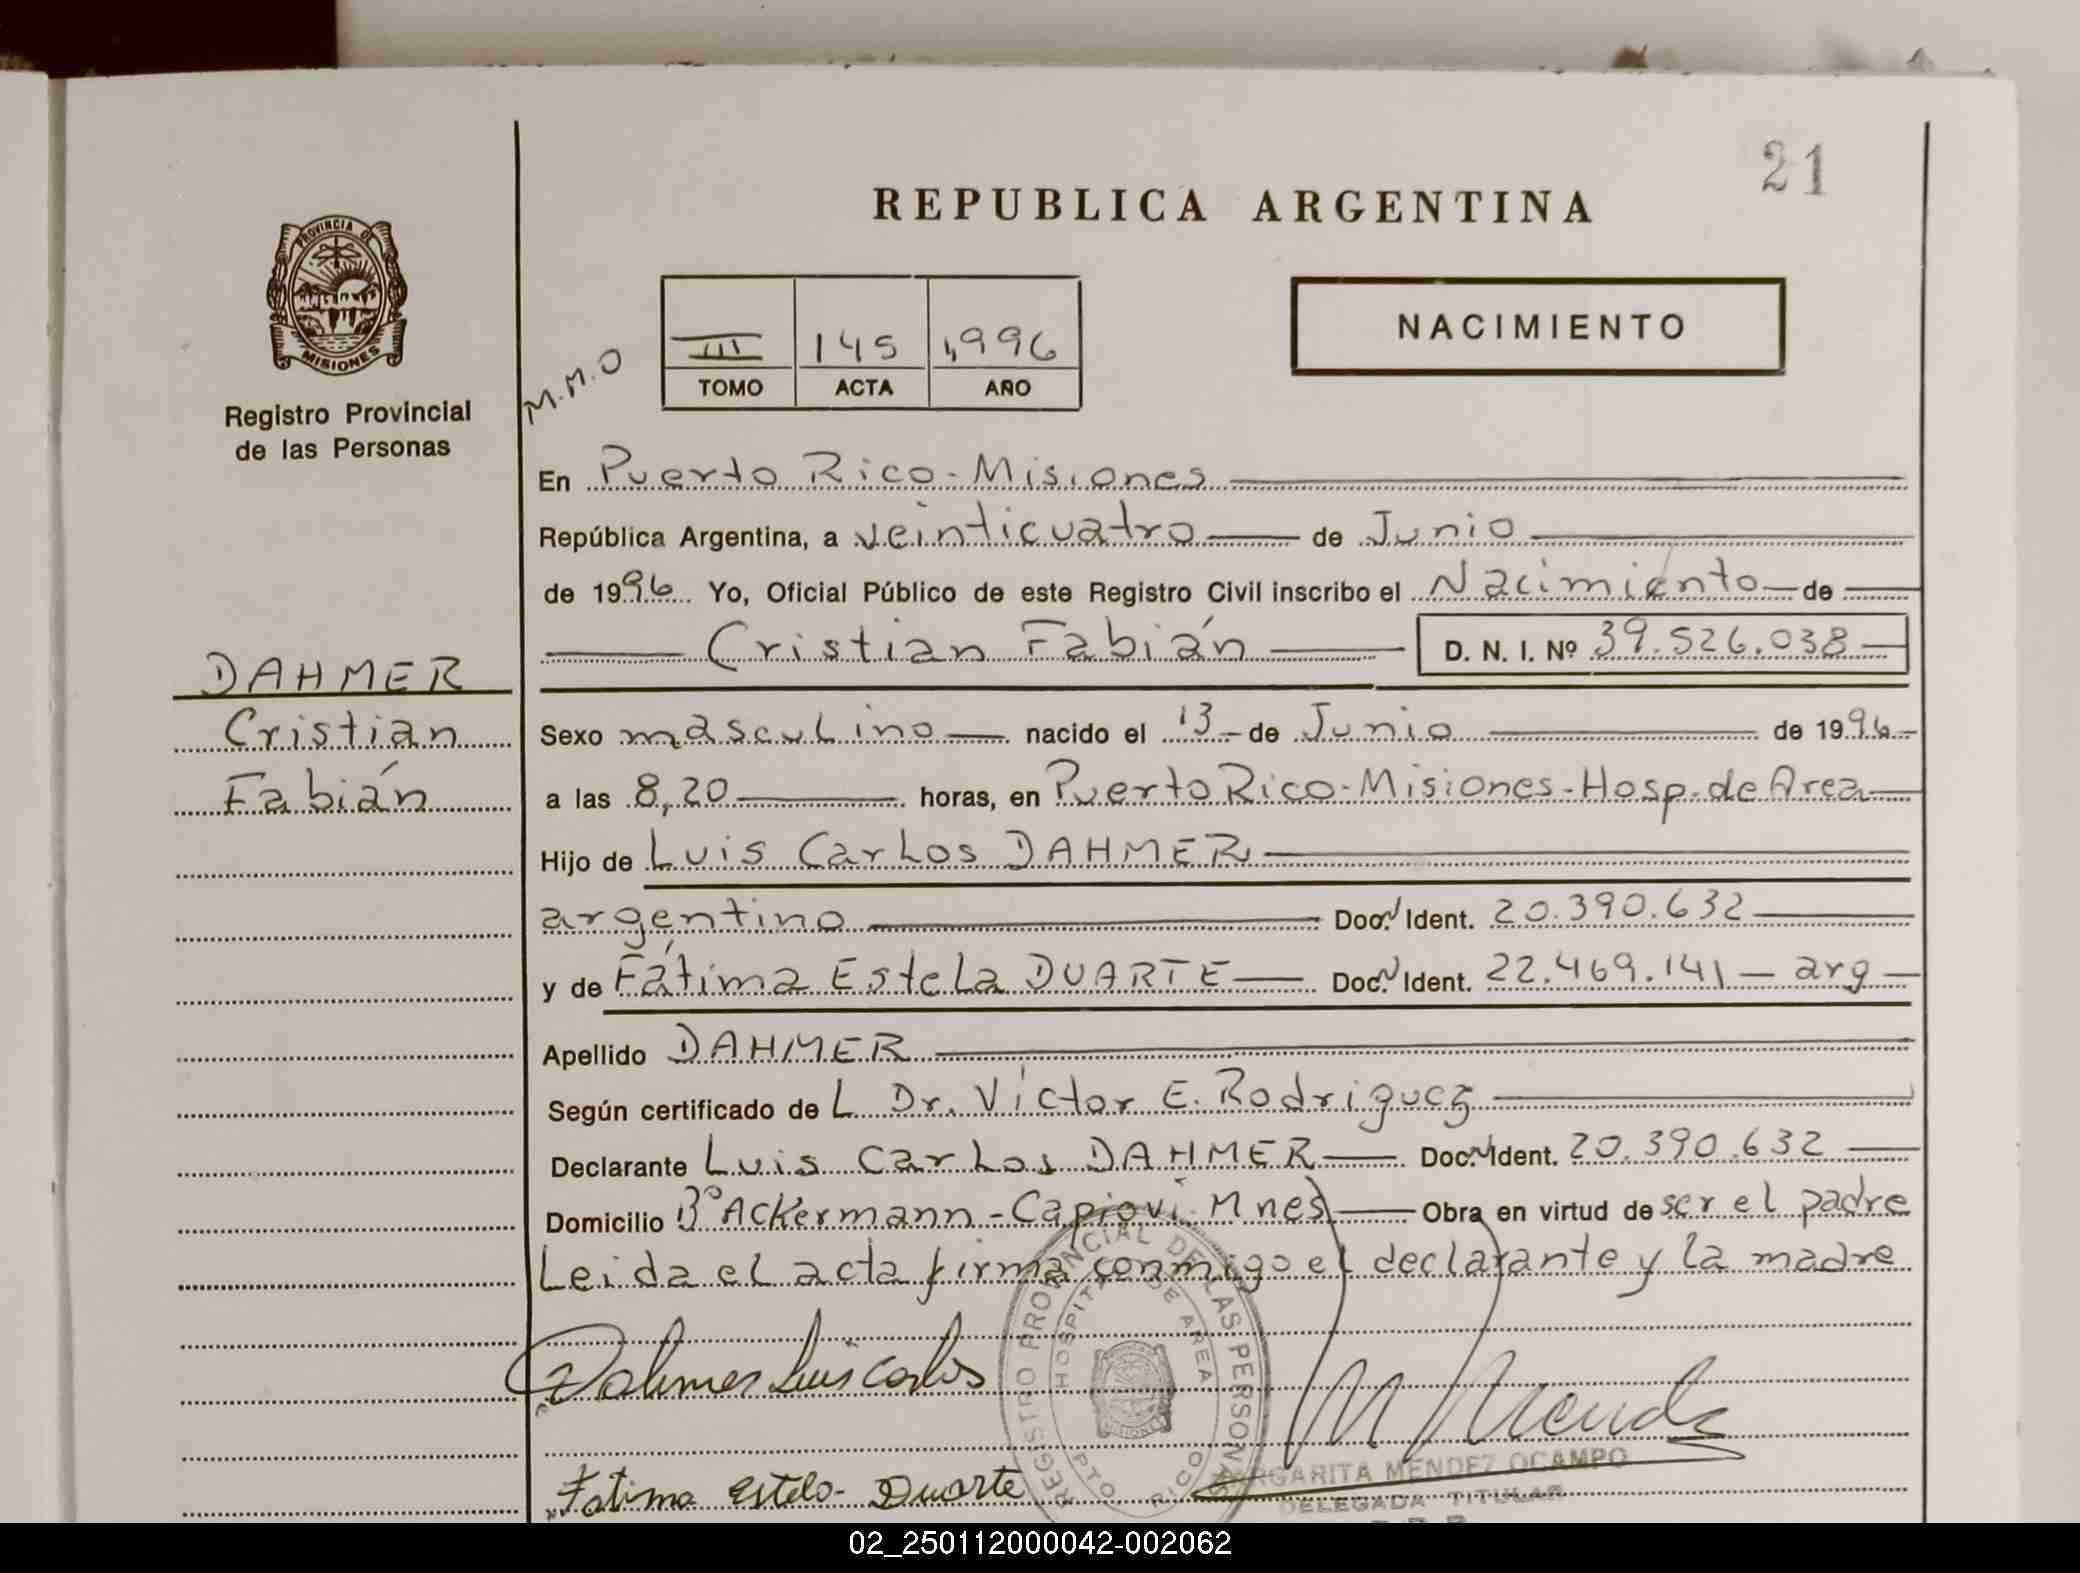 21
REPUBLICA ARGENTINA
PROVINCIA DE
MISIONES
NACIMIENTO
III 145 1,996
TOMO ACTA AÑO
M.M.O
Registro Provincial
de las Personas
En Puerto Rico-Misiones
República Argentina, a veinticuatro de Junio
de 1996 Yo, Oficial Público de este Registro Civil inscribo el Nacimiento de
Cristian Fabián D. N. I. Nº 39.526.038
DAHMER
Cristian
Fabián
Sexo masculino nacido el 13 de Junio de 1996
a las 8,20 horas, en Puerto Rico-Misiones-Hosp. de Area
Hijo de Luis Carlos DAHMER
argentino Doc. Ident. 20.390.632
y de Fátima Estela DUARTE Doc. Ident. 22.469.141 - arg
Apellido DAHMER
Según certificado de L Dr. Víctor E. Rodriguez
Declarante Luis Carlos DAHMER Doc. Ident. 20.390.632
Domicilio Bº Ackermann - Capioví. Mnes Obra en virtud de ser el padre
Leida el acta firma conmigo el declarante y la madre
Dahmer Luis Carlos
REGISTRO PROVINCIAL DE LAS PERSONAS
HOSPITAL DE AREA
PTO RICO
M Mendez
Fatima Estela Duarte
MARGARITA MENDEZ OCAMPO
DELEGADA TITULAR
02_250112000042-002062